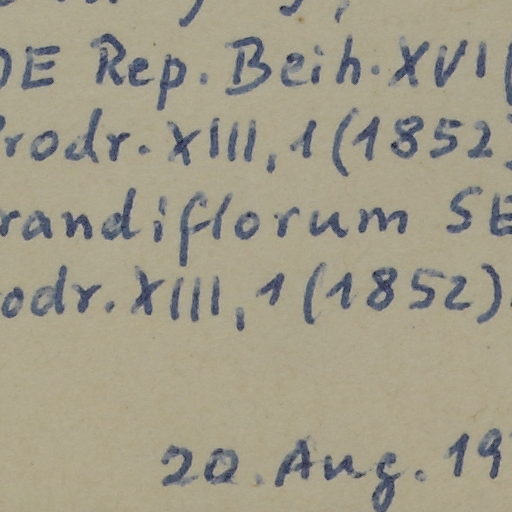 DE Rep. Beih. XVI(
Prodr. XIII, 1 (1852)
randiflorum SE
odr. XIII, 1 (1852).
20. Aug. 19